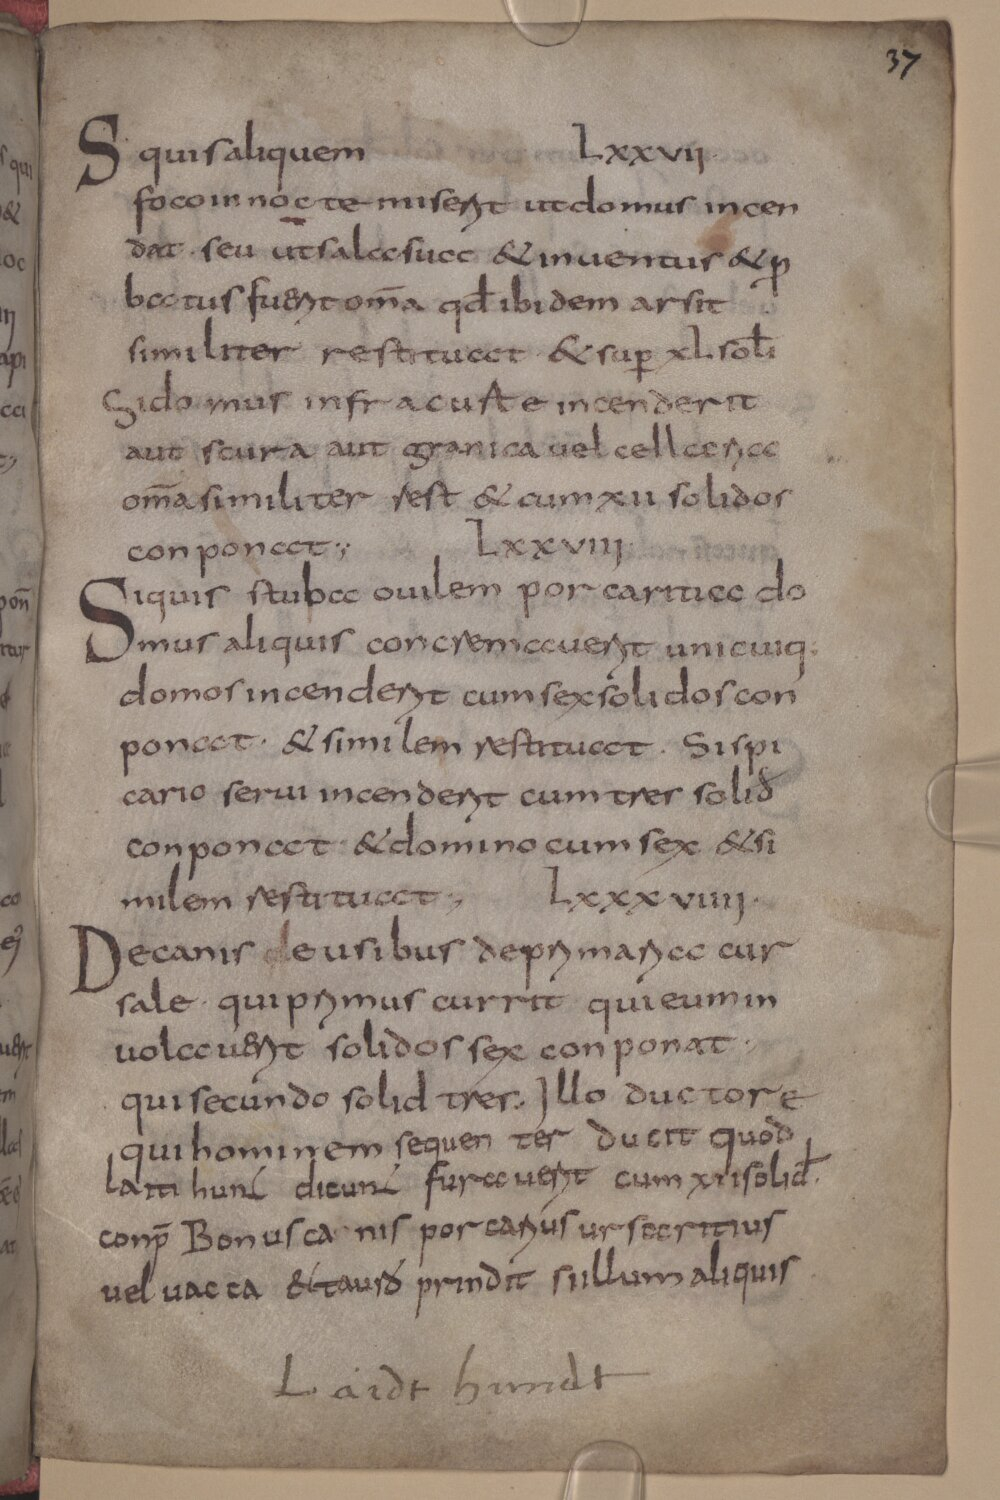 37
S quis aliquem LXXVII
foco in nocte miserit ut domus incen
dat. seu ut salasua & inuentus & p̱
batus fuerit om̄a qđ ibidem arsit
similiter restituat & sup̱ xL soƚi
Si domus infra curte incenderit
aut scura aut granica uel cellaria
om̄a similiter rest & cum xii solidos
conponat; LXXVIII
Siquis stuba ouilem porcaritia do
mus aliquis concremauerit unicuiq:
domos incenderit cum sex solidos con
ponat. & similem restituat. Si spi
cario serui incenderit cum tres soliđ
conponat & domino cum sex & si
milem restituat; LXXXVIIII
De canis de usibus deprimaria cur
sale. qui primus currit qui eum in
uolauerit solidos sex conponat.
qui secundo solid tres. Illo ductore
qui hominem sequenter ducit quod
laitihunt dicunt furauerit cum xii soliđ.
conp̄ Bonus canis porcarius ursaritius
uel uacca & taurū prindit si illum aliquis
Laidt hundt